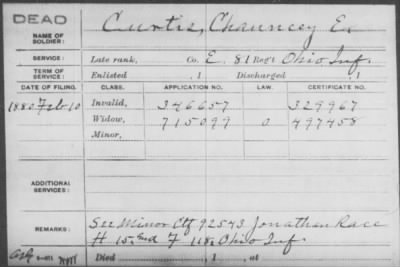 DEAD
NAME OF SOLDIER: Curtis, Chauncey E.
SERVICE: Late rank, Co. E, 81 Reg't Ohio Inf.
TERM OF SERVICE: Enlisted , 1 Discharged , 1
DATE OF FILING. CLASS. APPLICATION NO. LAW. CERTIFICATE NO.
1880 Feb 10 Invalid, 346657 329967
Widow, 715099 497458
Minor,
ADDITIONAL SERVICES:
REMARKS: See Minor Ctf 92543 Jonathan Race
H 15, and F 118, Ohio Inf.
Died , 1 , at